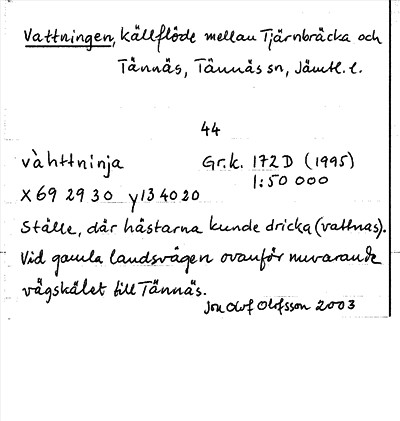 Vattningen, källflöde mellan Tjärnbräcka och
Tännäs, Tännäs sn, Jämtl. l.
44
vàhttninja Gr.k. 172 D (1995)
1:50 000
X 69 29 30 y 13 40 20
Ställe, där hästarna kunde dricka (vattnas).
Vid gamla landsvägen ovanför nuvarande
vägskälet till Tännäs.
Jon Olof Olofsson 2003